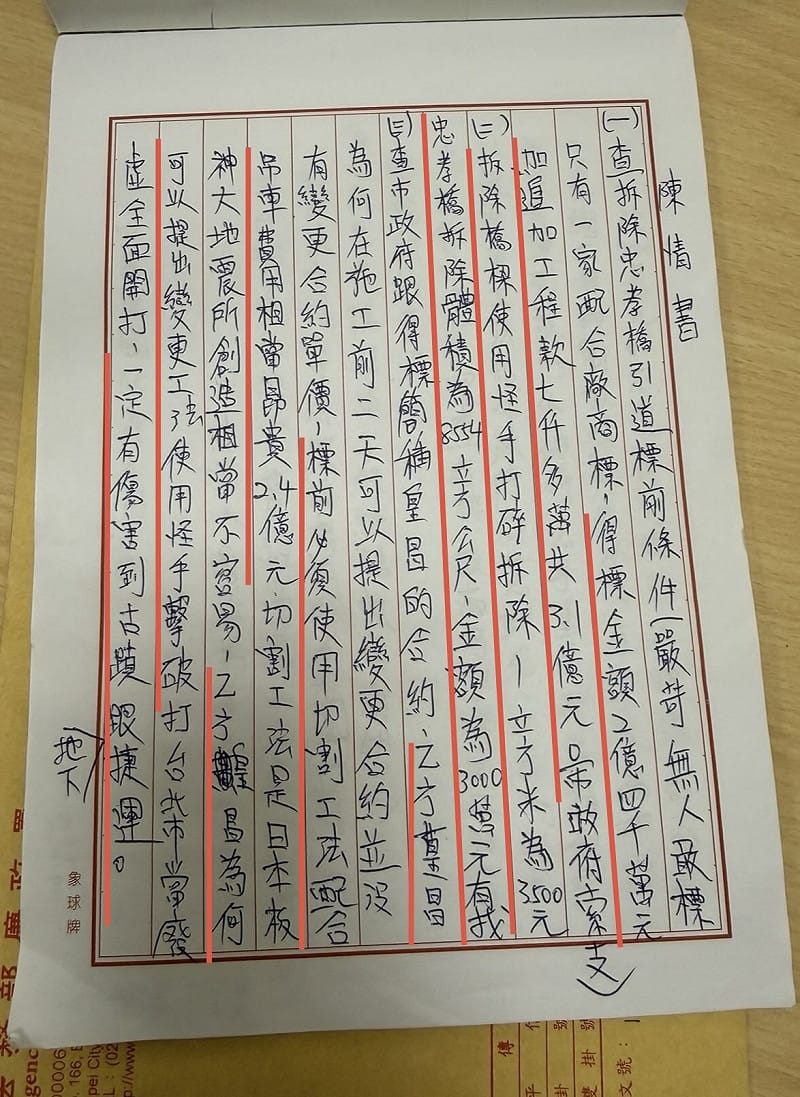 陳情書
(一)查拆除忠孝橋引道標前條件嚴苛無人敢標
只有一家配合廠商標,得標金額2億四千萬元
加追加工程款七仟多萬共3.1億元 市政府需支
(二)拆除橋樑使用怪手打碎拆除1立方米為3500元
忠孝橋拆除體積為8554立方公尺,金額為3000萬元有找
(三)查市政府跟得標簡稱皇昌的合約,乙方皇昌
為何在施工前二天可以提出變更合約並沒
有變更合約單價,標前必須使用切割工法配合
吊車費用相當昂貴2.4億元,切割工法是日本板
神大地震所創造相當不容易,乙方皇昌為何
可以提出變更工法使用怪手擊破打台北市當廢
虛全面開打,一定有傷害到古蹟跟捷運。
地下
象球牌
廉政署
法務部
gency
0006
166,
pei City
L:(02
http://www
傳
文號: